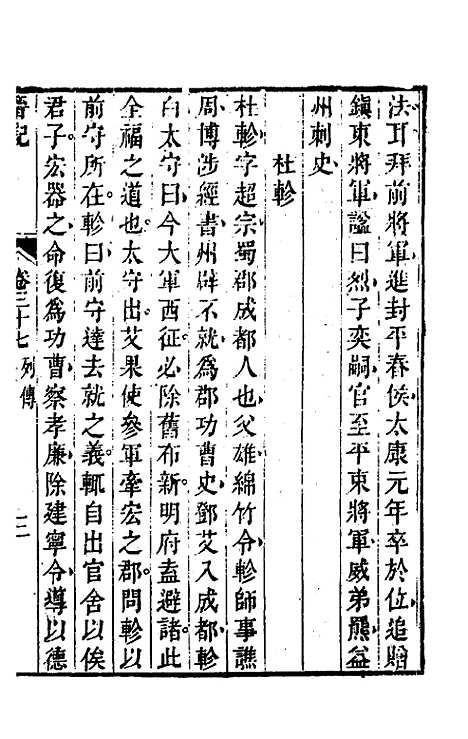 法耳拜前將軍進封平春侯太康元年卒於位追贈
鎭東將軍謚曰烈子奕嗣官至平東將軍威弟熊益
州刺史
杜軫
杜軫字超宗蜀郡成都人也父雄綿竹令軫師事譙
周博涉經書州辟不就爲郡功曹史鄧艾入成都軫
白太守曰今大軍西征必除舊布新明府盍避諸此
全福之道也太守出艾果使參軍牽宏之郡問軫以
前守所在軫曰前守達去就之義輒自出官舍以俟
君子宏器之命復爲功曹察孝廉除建寧令導以德
晉記
卷三十七
列傳
二